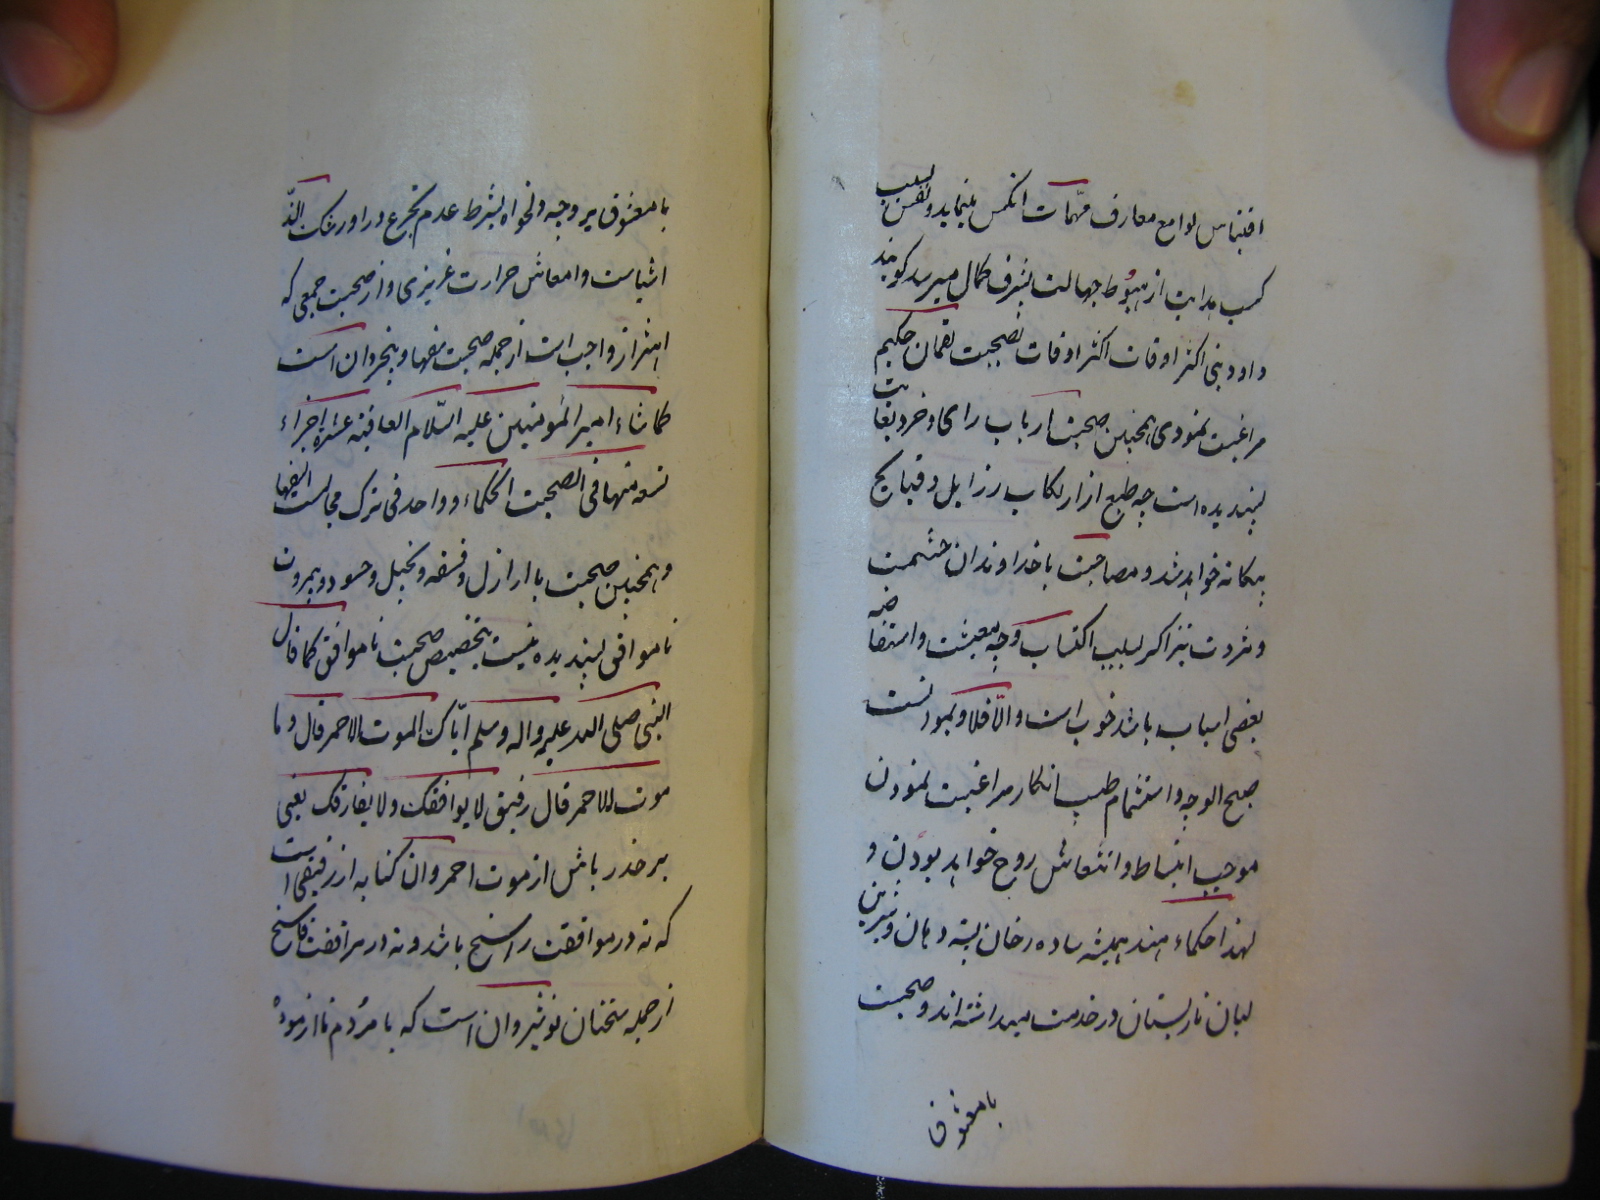 اقتباس لوامع معارف مهمات انکس بنماید و نفس بسبب
کسب هدایت از هبوط جهالت بشرف کمال میرسد کویند
داود نبی اکثر اوقات اکثر اوقات بصحبت لقمان حکیم
مراغبت نمودی همچنین صحبت ارباب رای و خرد بغایت
پسندیده است چه طبع از ارتکاب رزایل و قبایح
بیکانه خواهد شد و مصاحبت با خداوندان حشمت
و ثروت نیز اکر بسبب اکتساب وجه معیشت و استفاضه
بعضی اسباب باشد خوب است و الّا فلا و بمودنست
صبح الوجه و استشمام طیب انکار مراغبت نمودن
موجب انبساط و انتعاش روح خواهد بودن و
لهذا حکماء هند همیشه ساده رخان پسته دهان و شیرین
لبان نارپستان در خدمت میداشته اند و صحبت
با معشوق
با معشوق بر وجه دلخواه بشرط عدم تجرع در اوردن الذّ
اشیاست و امعاش حرارت غریزی و از صحبت جمعی که
احتراز واجب است از جمله صحبت سفها و بیخردان است
کما شاء امیر المؤمنین علیه السّلام العافیه عشره اجزاء
تسعه منها فی الصحبت الحکماء و واحد فی ترک مجالست السفها
و همچنین صحبت با ارازل و فسقه و بخیل و حسود و بیمروت
ناموافق پسندیده نیست بتخصیص صحبت ناموافق کما قال
النبی صلی الله علیه واله وسلم ایّاک الموت الاحمر قال و ما
موت الاحمر قال رفیق لا یوافقک و لا یفارقک یعنی
بر حذر باش از موت احمر و ان کنایه از رفیقی است
که نه در موافقت راسخ باشد و نه در مرافقت فاسخ
از جمله سخنان نوشیروان است که با مردم ناازموده